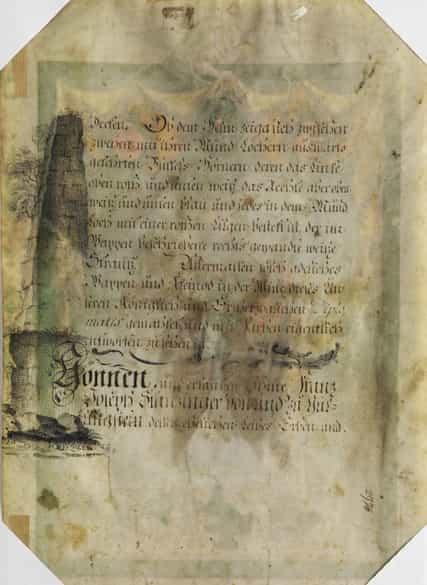 decken, Ob dem Helm zeiget sich zwischen
zweyen mit ihren Mund Löchern auswärts
gekehrten Büffels-Hörnern, deren das Linke
oben roth und unten weiß, das Rechte aber oben
weiß und unten blau und jedes in dem Mund
loch mit einer rothen Lilgen besteckt ist, der im
Wappen beschriebene rechts gewandte weiße
Strauß. Allermaßen solch adeliches
Wappen und Kleinod in der Mitte dieses Un
seren Königlich und Erzherzoglichen Diplo
matis gemahlet und mit Farben eigentlich
entworffen zu sehen ist.
Gönnen, und erlauben Ihme Franz
Joseph von und zu
dessen ehelichen Leibes Erben und